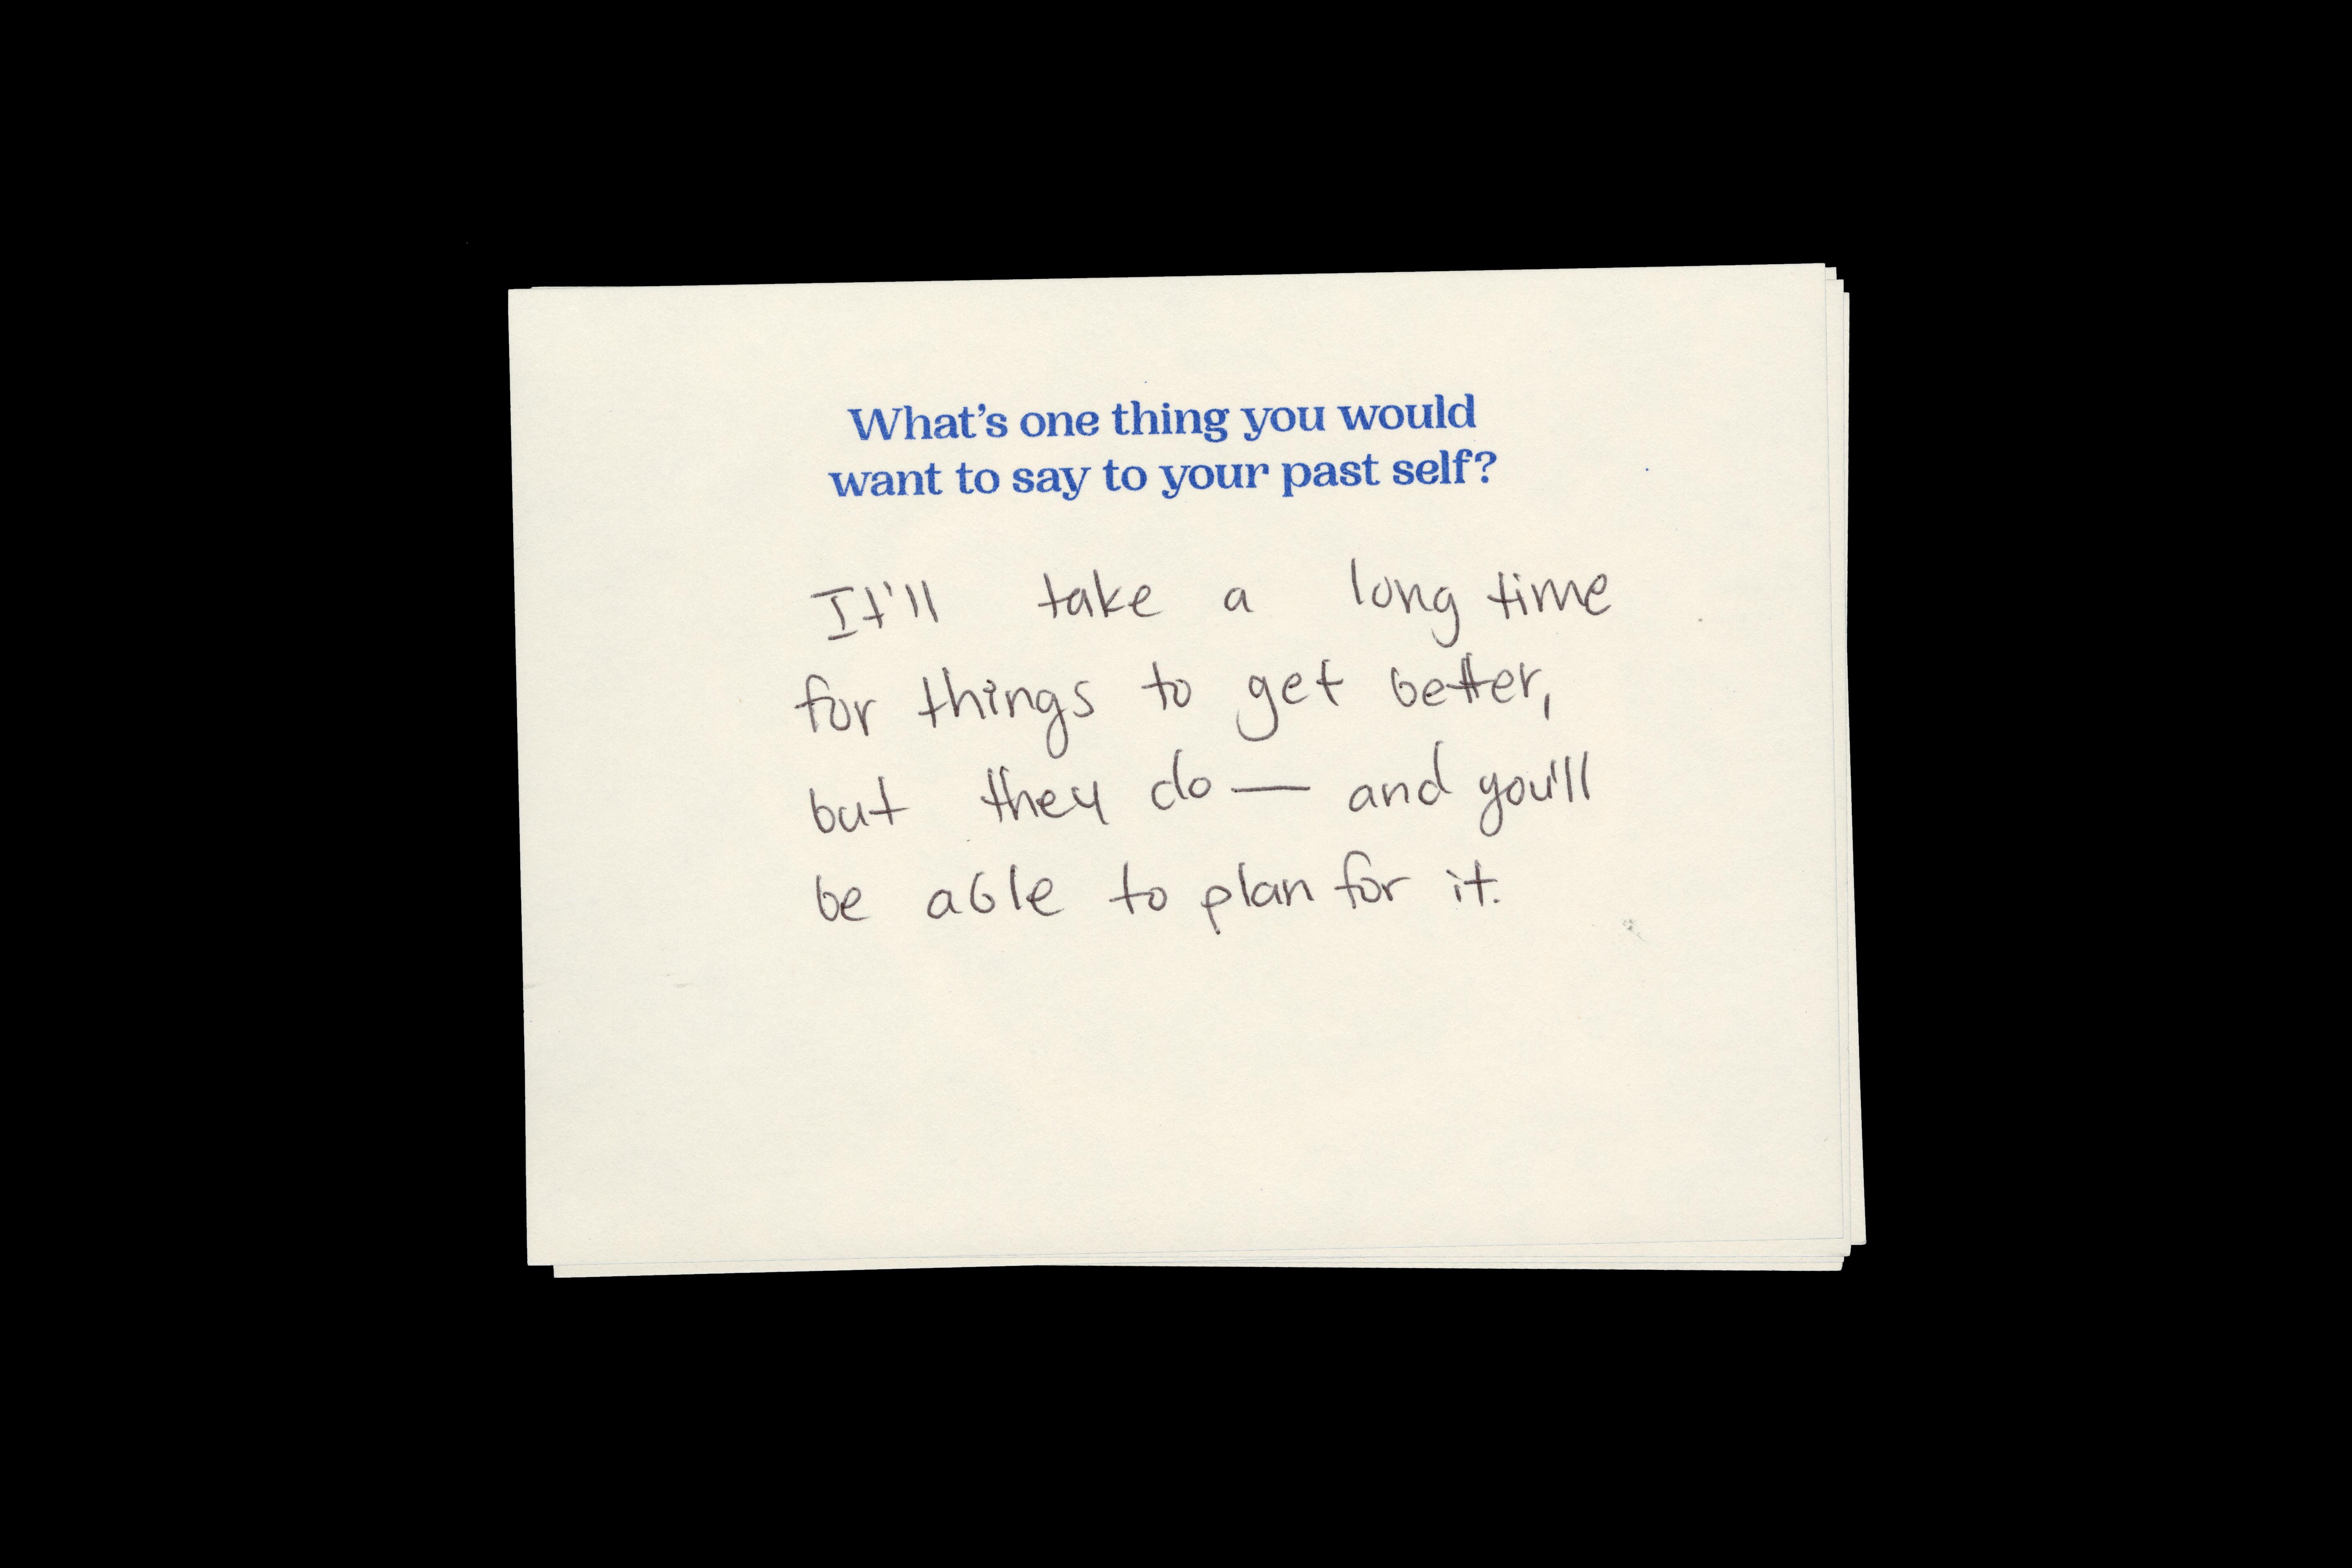 What's one thing you would
want to say to your past self?
It'll take a long time
for things to get better,
but they do — and you'll
be able to plan for it.